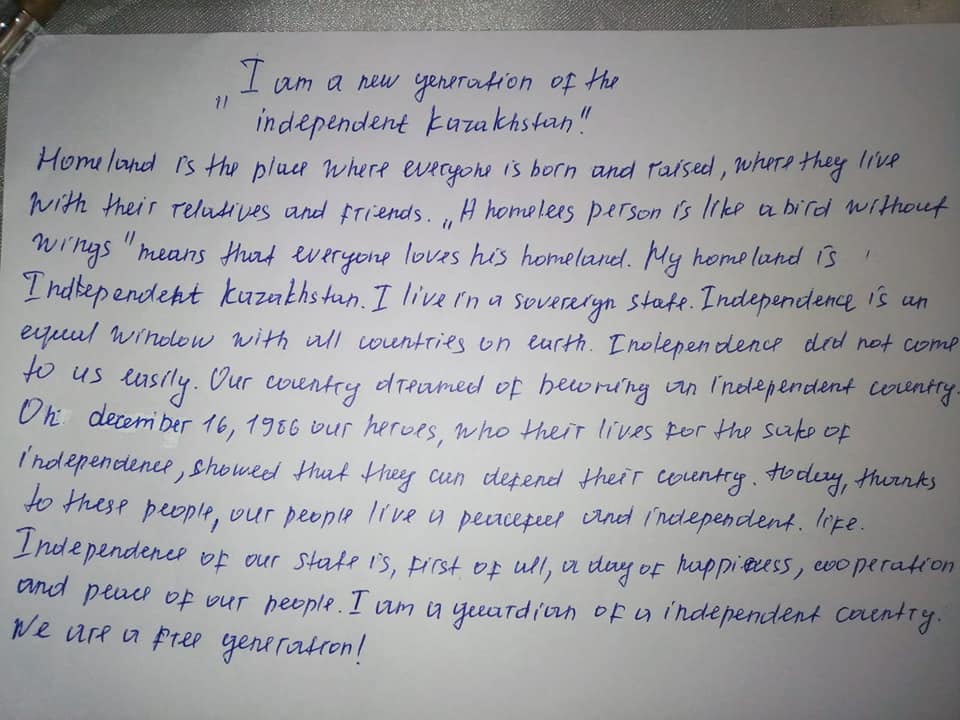 „I am a new generation of the
independent Kazakhstan"
Homeland is the place where everyone is born and raised, where they live
with their relatives and friends. „A homelees person is like a bird without
wings" means that everyone loves his homeland. My homeland is
Independent Kazakhstan. I live in a sovereign state. Independence is an
equal window with all countries on earth. Independence did not come
to us easily. Our country dreamed of becoming an independent country.
On december 16, 1986 our heroes, who their lives for the sake of
independence, showed that they can defend their country. today, thanks
to these people, our people live a peaceful and independent. life.
Independence of our state is, first of all, a day of happiness, cooperation
and peace of our people. I am a guardian of a independent country.
We are a free generation!